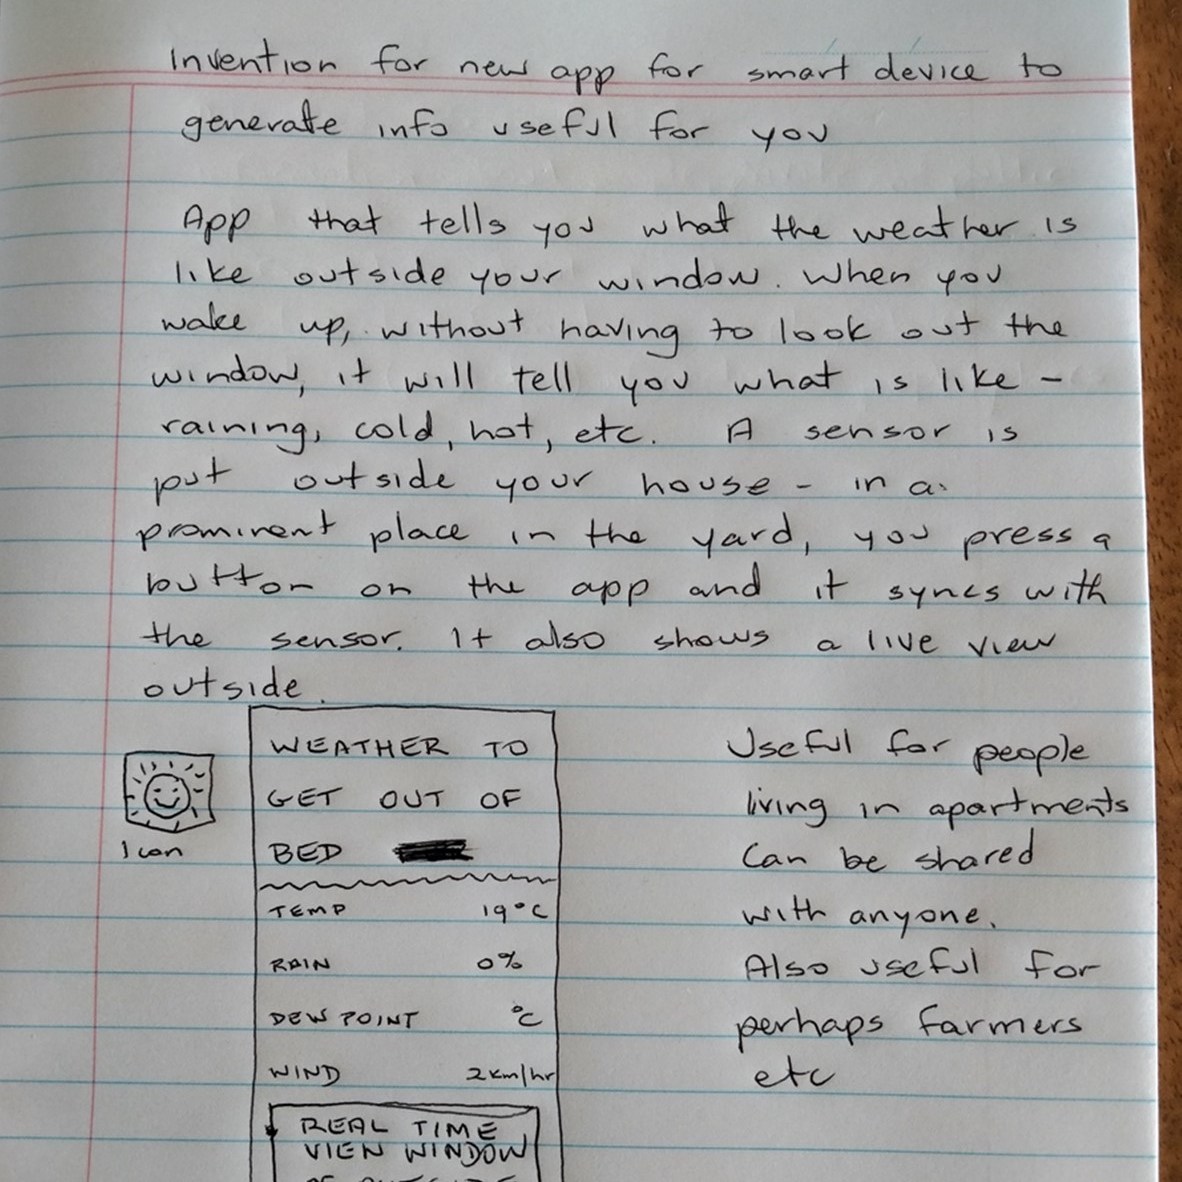 Invention for new app for smart device to
generate info useful for you
App that tells you what the weather is
like outside your window. When you
wake up, without having to look out the
window, it will tell you what is like -
raining, cold, hot, etc. A sensor is
put outside your house - in a
prominent place in the yard, you press a
button on the app and it syncs with
the sensor. It also shows a live view
outside.
Icon
WEATHER TO
GET OUT OF
BED
TEMP 19°C
RAIN 0%
DEW POINT °C
WIND 2km/hr
REAL TIME
VIEW WINDOW
OF OUTSIDE
Useful for people
living in apartments
Can be shared
with anyone.
Also useful for
perhaps farmers
etc